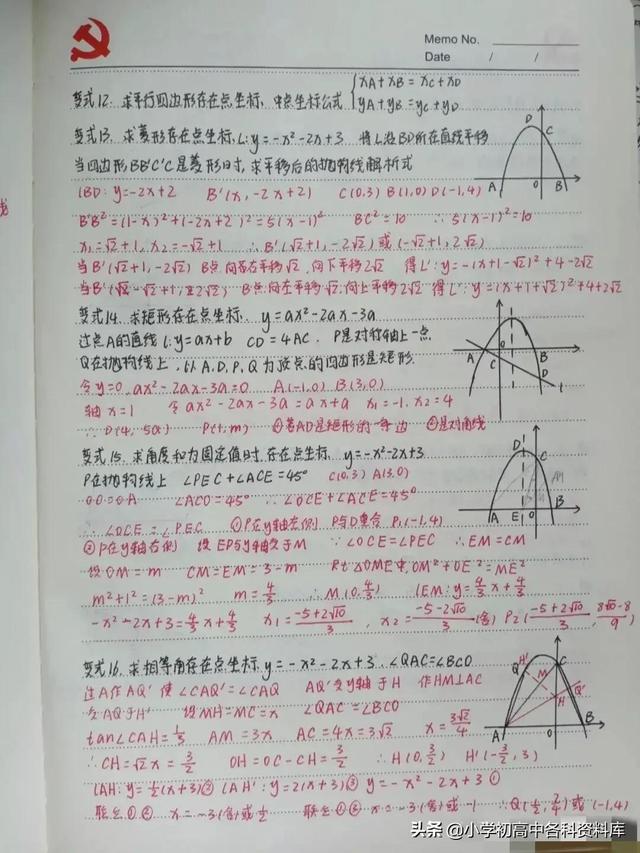 Memo No.
Date / /
变式12. 求平行四边形存在点坐标. 中点坐标公式 { xA+xB = xC+xD
yA+yB = yC+yD
变式13. 求菱形存在点坐标. L: y=-x²-2x+3 将L沿BD所在直线平移
当四边形BB'C'C是菱形时, 求平移后的抛物线解析式
lBD: y=-2x+2 B'(x, -2x+2) C(0,3) B(1,0) D(-1,4)
B'B²=(1-x)²+(-2x+2)²=5(x-1)² BC²=10 ∴ 5(x-1)²=10
x₁=√2+1, x₂=-√2+1 ∴ B'(√2+1, -2√2)或(-√2+1, 2√2)
当B'(√2+1, -2√2) B点向右平移√2, 向下平移2√2 得L': y=-(x+1-√2)²+4-2√2
B点向左平移√2, 向上平移2√2 得L': y=-(x+1+√2)²+4+2√2
变式14. 求矩形存在点坐标. y=ax²-2ax-3a
过点A的直线l: y=ax+b CD=4AC. P是对称轴上一点
Q在抛物线上, 以A.D.P.Q为顶点的四边形是矩形.
令y=0, ax²-2ax-3a=0 A(-1,0) B(3,0)
轴x=1 令ax²-2ax-3a=ax+a x₁=-1, x₂=4
∴ D(4, 5a) P(1, m) ①若AD是矩形的一条边 ②是对角线
变式15. 求角度和为固定值时, 存在点坐标. y=-x²-2x+3
P在抛物线上 ∠PEC+∠ACE=45° C(0,3) A(3,0)
∠ACO=45° ∴ ∠OCE+∠ACE=45°
∴ ∠OCE=∠PEC ①P在y轴左侧 P与D重合 P₁(-1,4)
②P在y轴右侧 设EP与y轴交于M ∵ ∠OCE=∠PEC ∴ EM=CM
设OM=m CM=EM=3-m Rt△OME中, OM²+OE²=ME²
m²+1²=(3-m)² m=4/3 ∴ M(0, 4/3) lEM: y=4/3x+4/3
-x²-2x+3=4/3x+4/3 x₁=(-5+2√10)/3, x₂=(-5-2√10)/3(舍) P₂((-5+2√10)/3, (8√10-8)/9)
变式16. 求相等角存在点坐标 y=-x²-2x+3. ∠QAC=∠BCO
过A作AQ' 使∠CAQ'=∠CAQ AQ'交y轴于H 作HM⊥AC
交AQ于H' 设MH=MC=x ∠QAC=∠BCO
tan∠CAH=1/3 AM=3x AC=4x=3√2 x=3√2/4
∴ CH=√2x=3/2 OH=OC-CH=3/2 ∴ H(0, 3/2) H'(-3/2, 3)
lAH: y=1/2(x+3)② lAH': y=2(x+3)③ y=-x²-2x+3 ①
联立①② x=-3(舍)或1/2 联立①③ x=-3(舍)或-1 ∴ Q(1/2, 7/4)或(-1,4)
头条 @小学初高中各科资料库